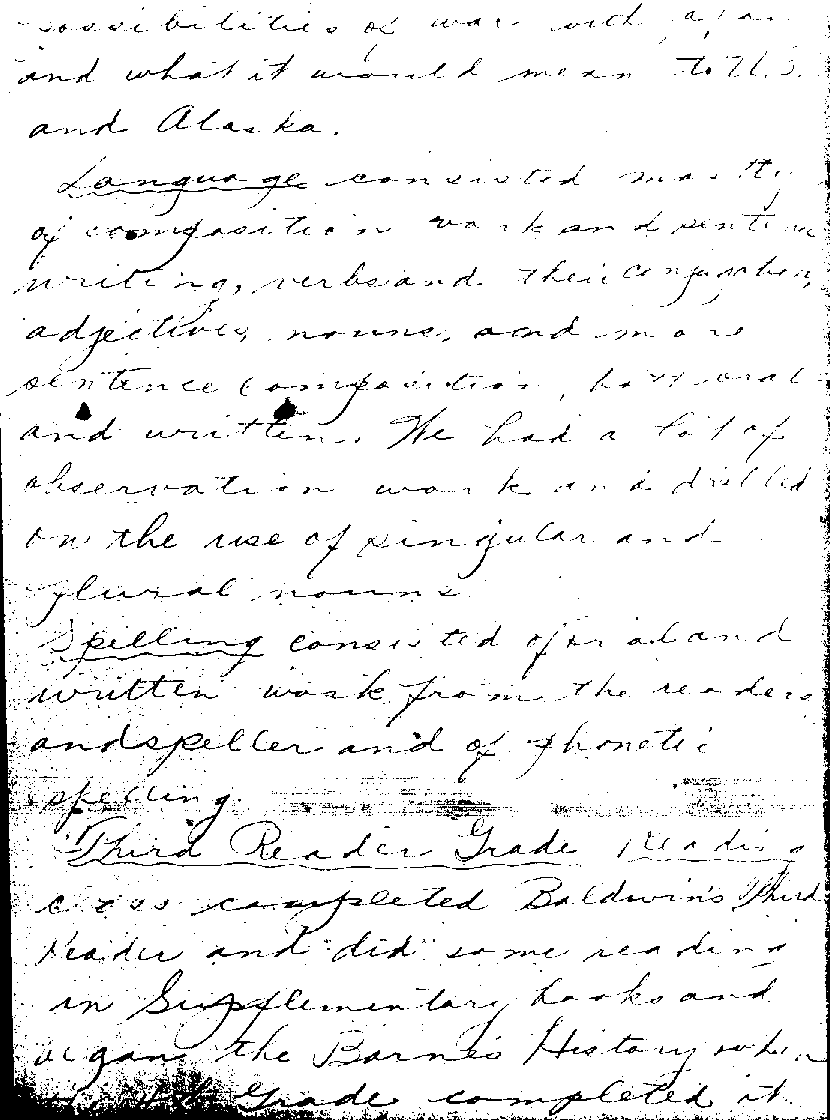 possibilities of war with Japan
and what it would mean to U.S.
and Alaska.
Language consisted mostly
of composition work and sentence
writing, verbs and their conjugation,
adjectives, nouns, and more
sentence composition, both oral
and written. We had a lot of
observation work and drilled
on the use of singular and
plural nouns
Spelling consisted of oral and
written work from the readers
and speller and of phonetic
spelling.
Third Reader Grade Reading
class completed Baldwin's Third
Reader and did some reading
in Supplementary books and
began the Barnes History when
the 4th Grade completed it